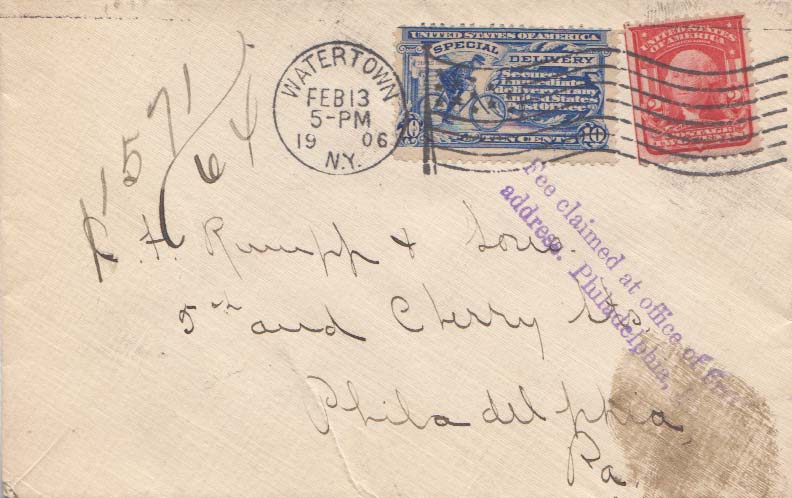 WATERTOWN
FEB 13
5-PM
19 06
N.Y.
UNITED STATES OF AMERICA
SPECIAL DELIVERY
Secures
Immediate
delivery at any
United States
10 TEN CENTS 10
UNITED STATES
OF AMERICA
2 2
POSTAGE
TWO CENTS
1571
64
Fee claimed at office of
address. Philadelphia,
C. F. Rumpp & Sons.
5th and Cherry Sts.
Philadelphia,
Pa.